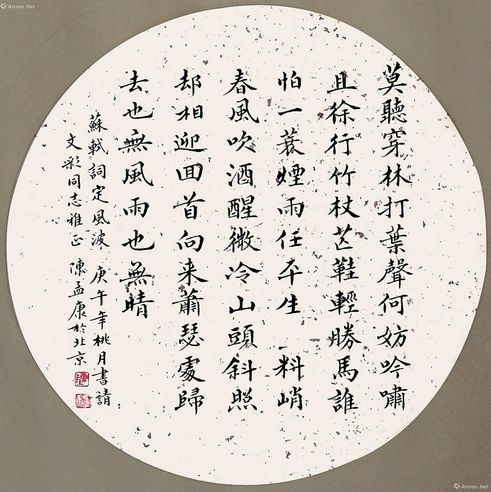 莫聽穿林打葉聲何妨吟嘯
且徐行竹杖芒鞋輕勝馬誰
怕一蓑煙雨任平生 料峭
春風吹酒醒微冷山頭斜照
却相迎回首向来蕭瑟處歸
去也無風雨也無晴
蘇軾詞定風波 庚午年桃月書請
文彩同志雅正 陳孟康於北京
Artron.Net
Artron.Net